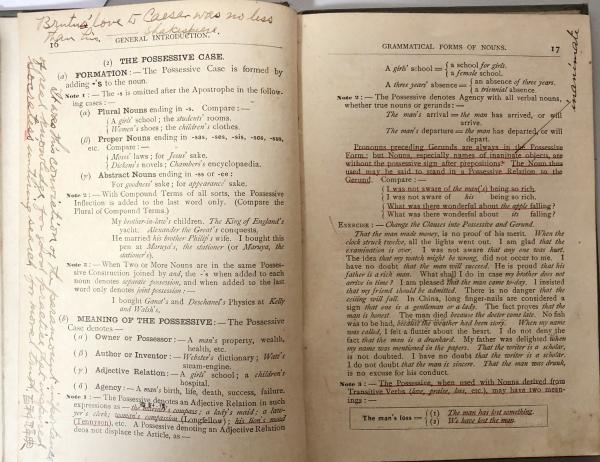 Brutus' love to Caesar was no less
than his. Shakespeare.
16 GENERAL INTRODUCTION.
(2) THE POSSESSIVE CASE.
(a) FORMATION: — The Possessive Case is formed by
adding -'s to the noun.
Note 1: — The -s is omitted after the Apostrophe in the follow-
ing cases: —
(α) Plural Nouns ending in -s. Compare: —
A girls' school; the students' rooms.
Women's shoes; the children's clothes.
(β) Proper Nouns ending in -sas, -ses, -sis, -sos, -sus,
etc. Compare: —
Moses' laws; for Jesus' sake.
Dickens's novels; Chambers's encyclopaedia.
(γ) Abstract Nouns ending in -ss or -ce:
For goodness' sake; for appearance' sake.
Note 2: — With Compound Terms of all sorts, the Possessive
Inflection is added to the last word only. (Compare the
Plural of Compound Terms.)
My brother-in-law's children. The King of England's
yacht. Alexander the Great's conquests.
He married his brother Philip's wife. I bought this
pen at Maruya's, the stationer (or Maruya, the
stationer's).
Note 3: — When Two or More Nouns are in the same Posses-
sive Construction joined by and, the -'s when added to each
noun denotes separate possession, and when added to the last
word only denotes joint possession: —
I bought Ganot's and Deschanel's Physics at Kelly
and Walsh's.
(b) MEANING OF THE POSSESSIVE: — The Possessive
Case denotes —
(α) Owner or Possessor: — A man's property, wealth,
health, etc.
(β) Author or Inventor: — Webster's dictionary; Watt's
steam-engine.
(γ) Adjective Relation: — A girls' school; a children's
hospital.
(δ) Agency: — A man's birth, life, death, success, failure.
Note 1: — The Possessive denotes an Adjective Relation in such
expressions as — the mariner's compass; a lady's maid; a law-
yer's clerk; woman's compassion (Longfellow); his lion's mood
(Tennyson), etc. A Possessive denoting an Adjective Relation
does not displace the Article, as —
GRAMMATICAL FORMS OF NOUNS. 17
A girls' school = a school for girls.
a female school.
A three years' absence = an absence of three years.
a triennial absence.
Note 2: — The Possessive denotes Agency with all verbal nouns,
whether true nouns or gerunds: —
The man's arrival = the man has arrived, or will
arrive.
The man's departure = the man has departed, or will
depart.
Pronouns preceding Gerunds are always in the Possessive
Form; but Nouns, especially names of inanimate objects, are
without the possessive sign after prepositions. The Noun thus
used may be said to stand in a Possessive Relation to the
Gerund. Compare: —
I was not aware of the man('s) being so rich.
I was not aware of his being so rich.
What was there wonderful about the apple falling?
What was there wonderful about its falling?
EXERCISE: — Change the Clauses into Possessive and Gerund.
That the man made money, is no proof of his merit. When the
clock struck twelve, all the lights went out. I am glad that the
examination is over. I was not aware that any one was hurt.
The idea that my watch might be wrong, did not occur to me. I
have no doubt that the man will succeed. He is proud that his
father is a rich man. What shall I do in case my brother does not
arrive in time? I am pleased that the man came to-day. I insisted
that my friend should be admitted. There is no danger that the
ceiling will fall. In China, long finger-nails are considered a
sign that one is a gentleman or a lady. The fact proves that the
man is honest. The man died because the doctor came late. No fish
was to be had, because the weather had been stormy. When my name
was called, I felt a flutter about the heart. I do not deny the
fact that the man is a drunkard. My father was delighted when
my name was mentioned in the papers. That the writer is a scholar,
is not doubted. I have no doubt that the writer is a scholar.
I do not doubt that the man is sincere. That the man was drunk,
is no excuse for his conduct.
Note 3: — The Possessive, when used with Nouns derived from
Transitive Verbs (love, praise, loss, etc.), may have two mean-
ings: —
The man's loss = (1) The man has lost something.
(2) We have lost the man.
inanimate